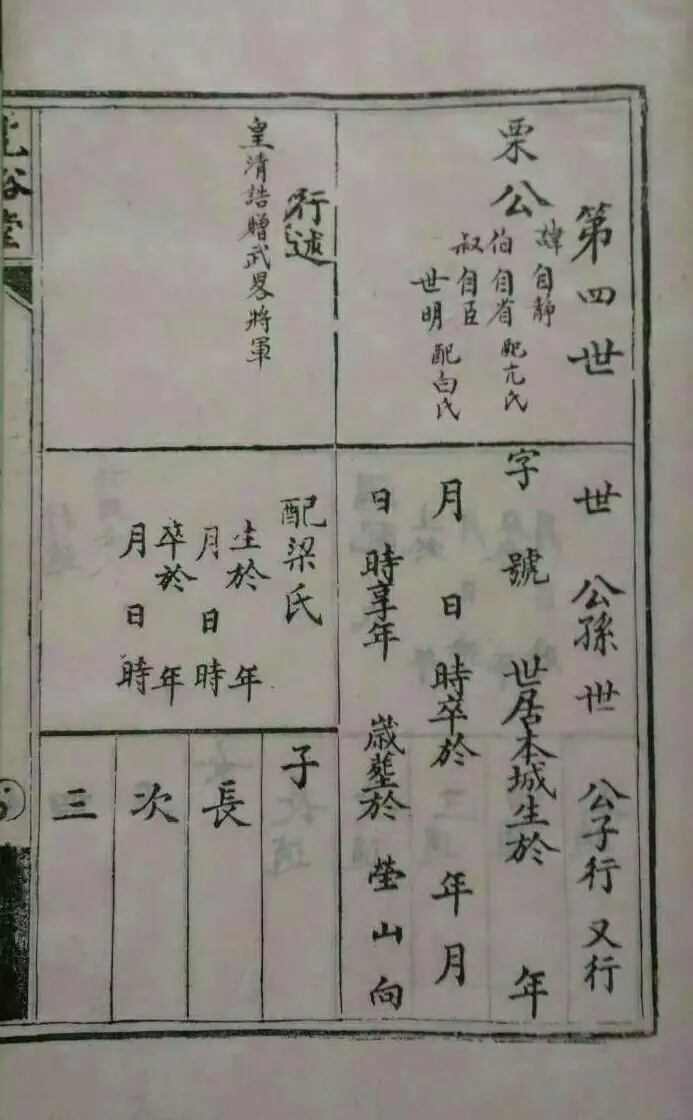 第四世
栗公
諱自靜
伯自省 配亢氏
叔自臣
世明 配白氏
世 公孫世 公子行又行
字 號 世居本城生於 年
月 日 時卒於 年 月
日 時享年 歲塟於 塋山向
行述
皇清誥贈武畧將軍
配梁氏
生於 年
月 日 時
卒於 年
月 日 時
子
長
次
三
裕堂